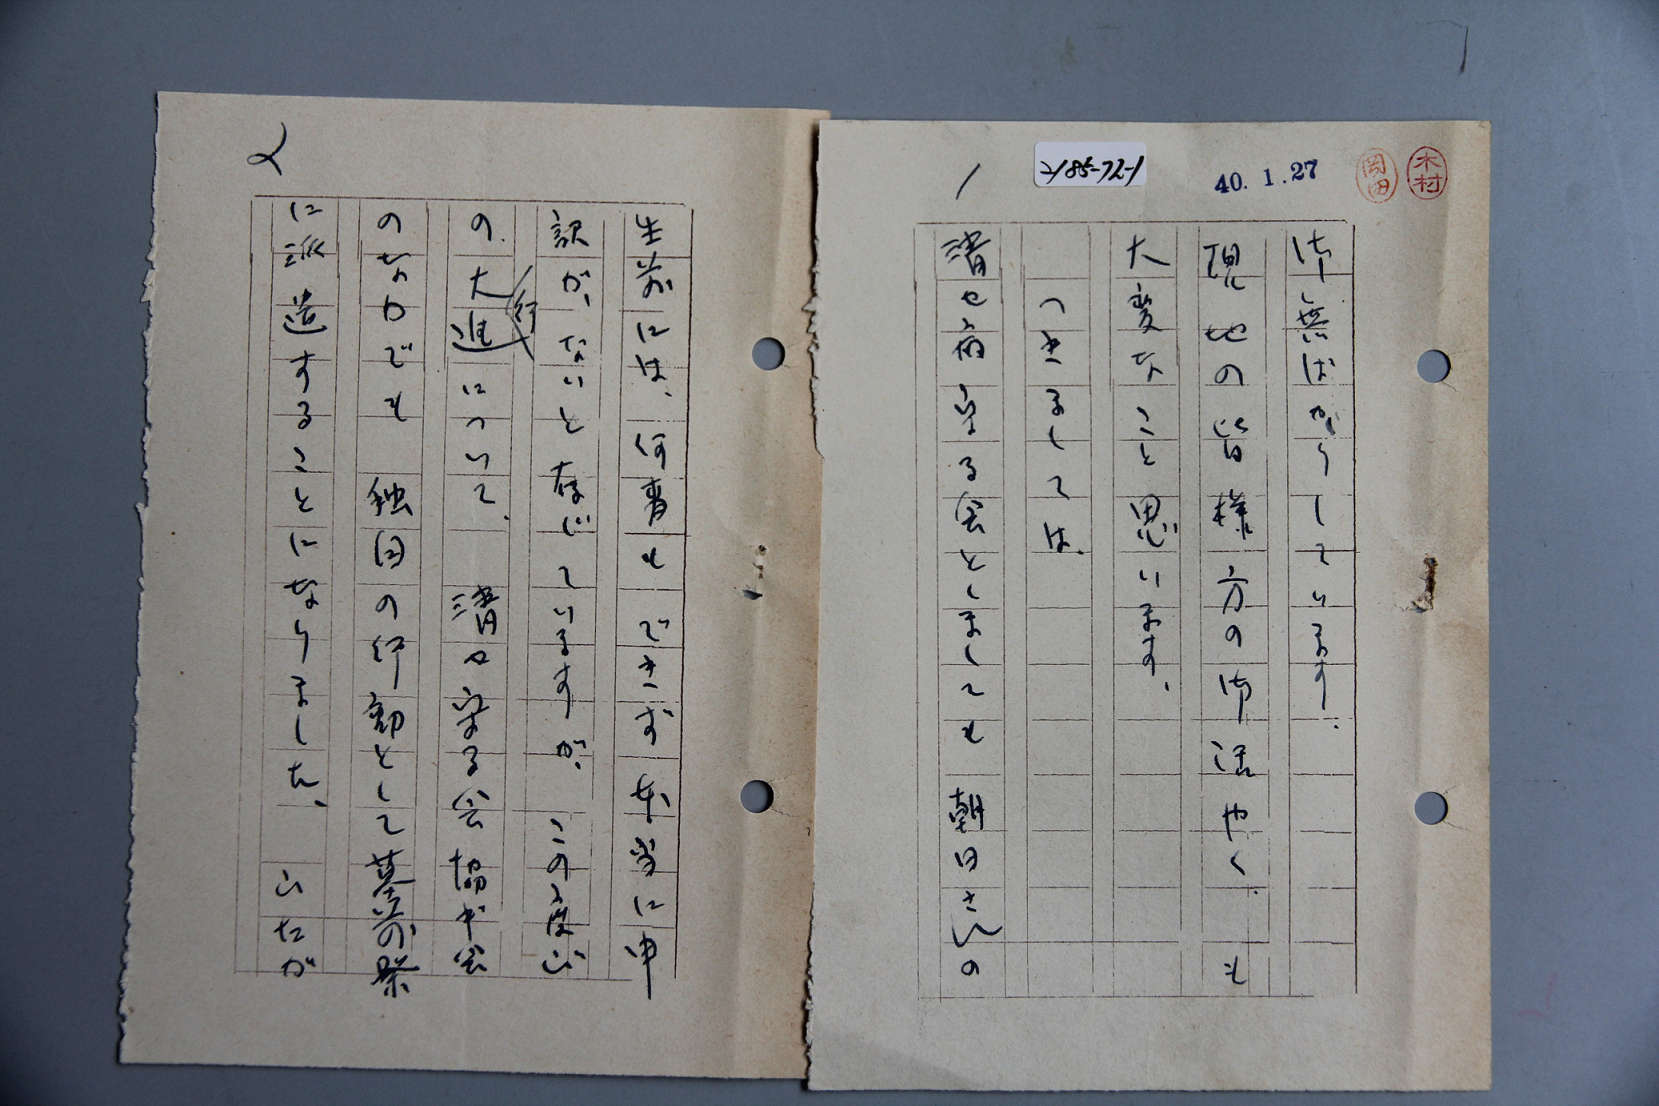 1
2185-72-1
40.1.27
岡田
木村
御無ばかりしています。
現地の皆様方の御活やく、も
大変なこと思います。
つきましては、
清セ病守る会としましても朝日さんの
2
生前には、何事もできず本当に申
訳がないと存じていますが、この度
の大行進について、清セ守る会協ギ会
のなかでも独自の行動として墓前祭
に派遣することになりました。したが